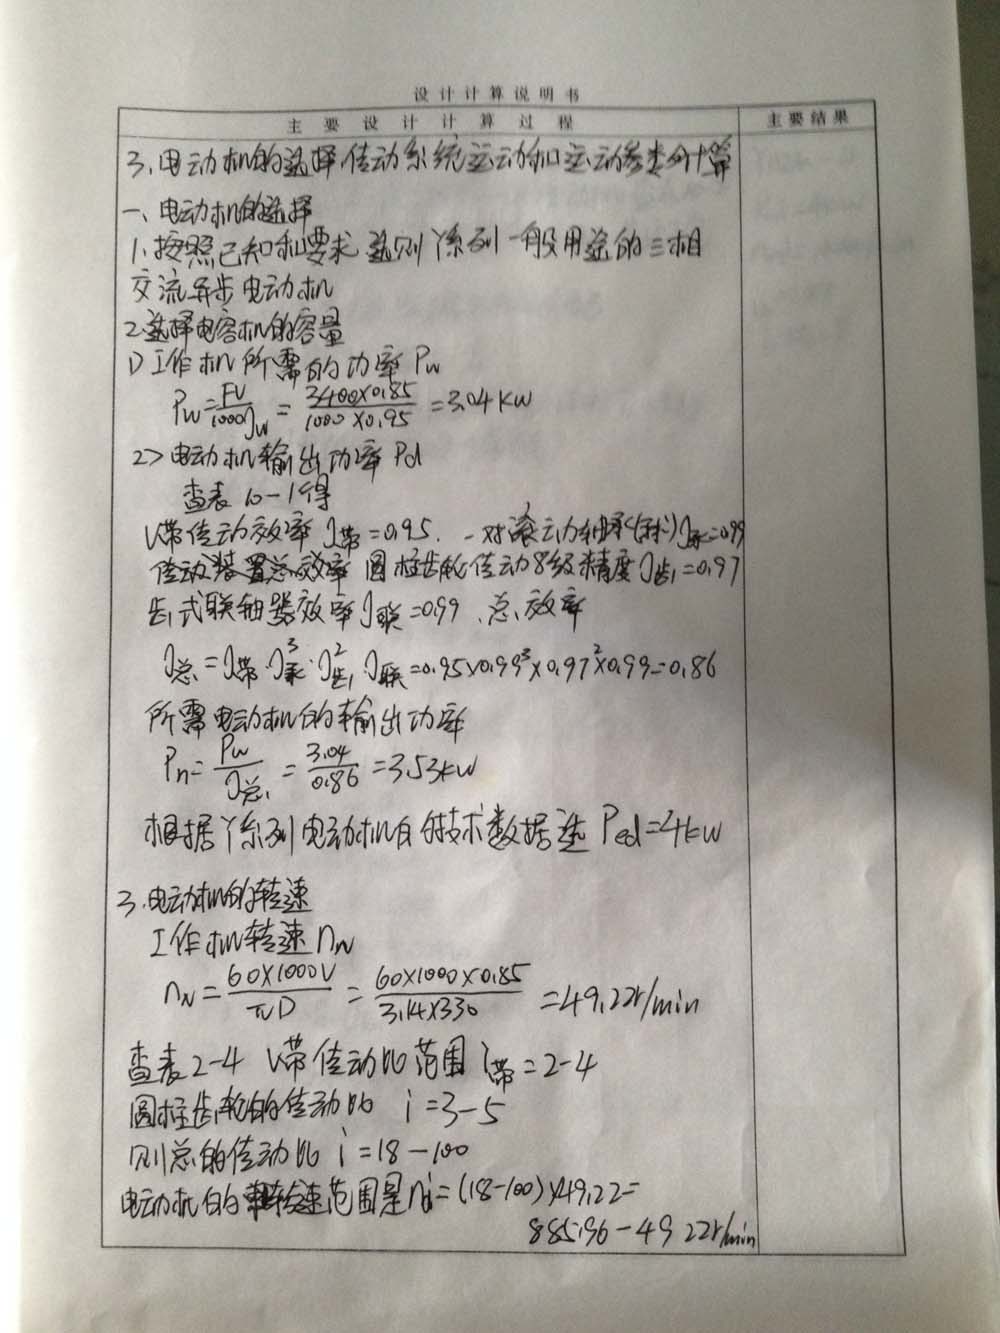 设计计算说明书
主要设计计算过程
主要结果
3.电动机的选择传动系统运动和运动参类的计算
一、电动机的选择
1.按照已知和要求选则Y系列一般用途的三相
交流异步电动机
2.选择电容机的容量
1)工作机所需的功率Pw
Pw=FV/1000ηw=3400×0.85/1000×0.95=3.04kw
2>电动机输出功率Pd
查表10-1得
V带传动效率η带=0.95.一对滚动轴承(球)η承=0.99
传动装置总效率 圆柱齿轮传动8级精度η齿=0.97
齿式联轴器效率η联=0.99、总效率
η总=η带·η承³·η齿²·η联=0.95×0.99³×0.97²×0.99=0.86
所需电动机的输出功率
Pn=Pw/η总=3.04/0.86=3.53kw
根据Y系列电动机的技术数据选Ped=4kw
3.电动机的转速
工作机转速nw
nw=60×1000V/πD=60×1000×0.85/3.14×330=49.22r/min
查表2-4 V带传动比范围i带=2-4
圆柱齿轮的传动比 i=3-5
则总的传动比i=18-100
电动机的转速范围是ni=(18-100)×49.22=
885.96-4922r/min